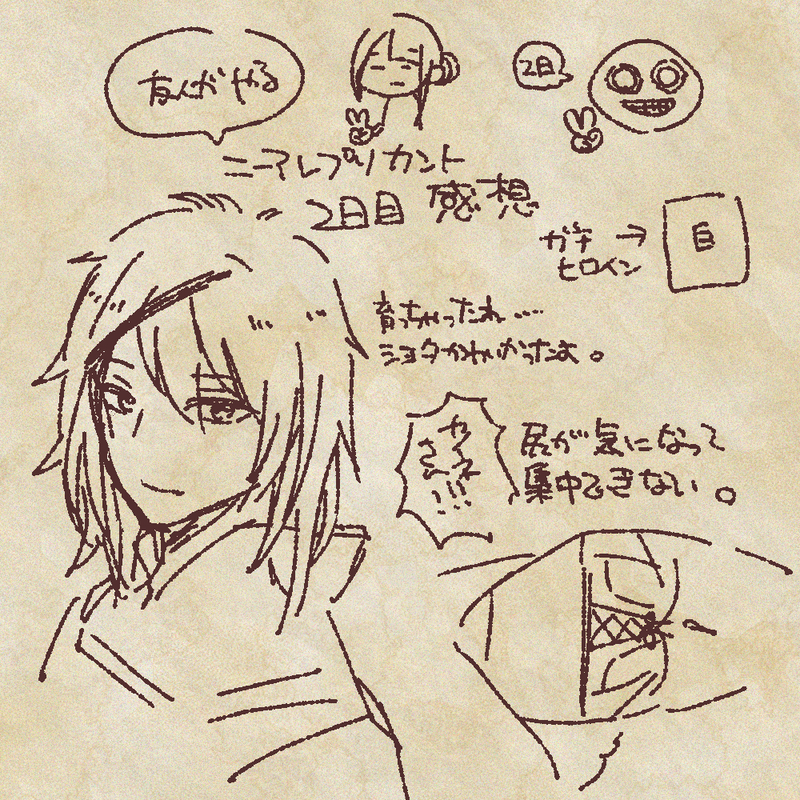 友人がやる
2日
ニーアレプリカント
2日目 感想
ガチ→
ヒロイン
白
育っちゃったれ…
ショタかわいかったよ。
カイネ
さん!!!
尻が気になって
集中できない。